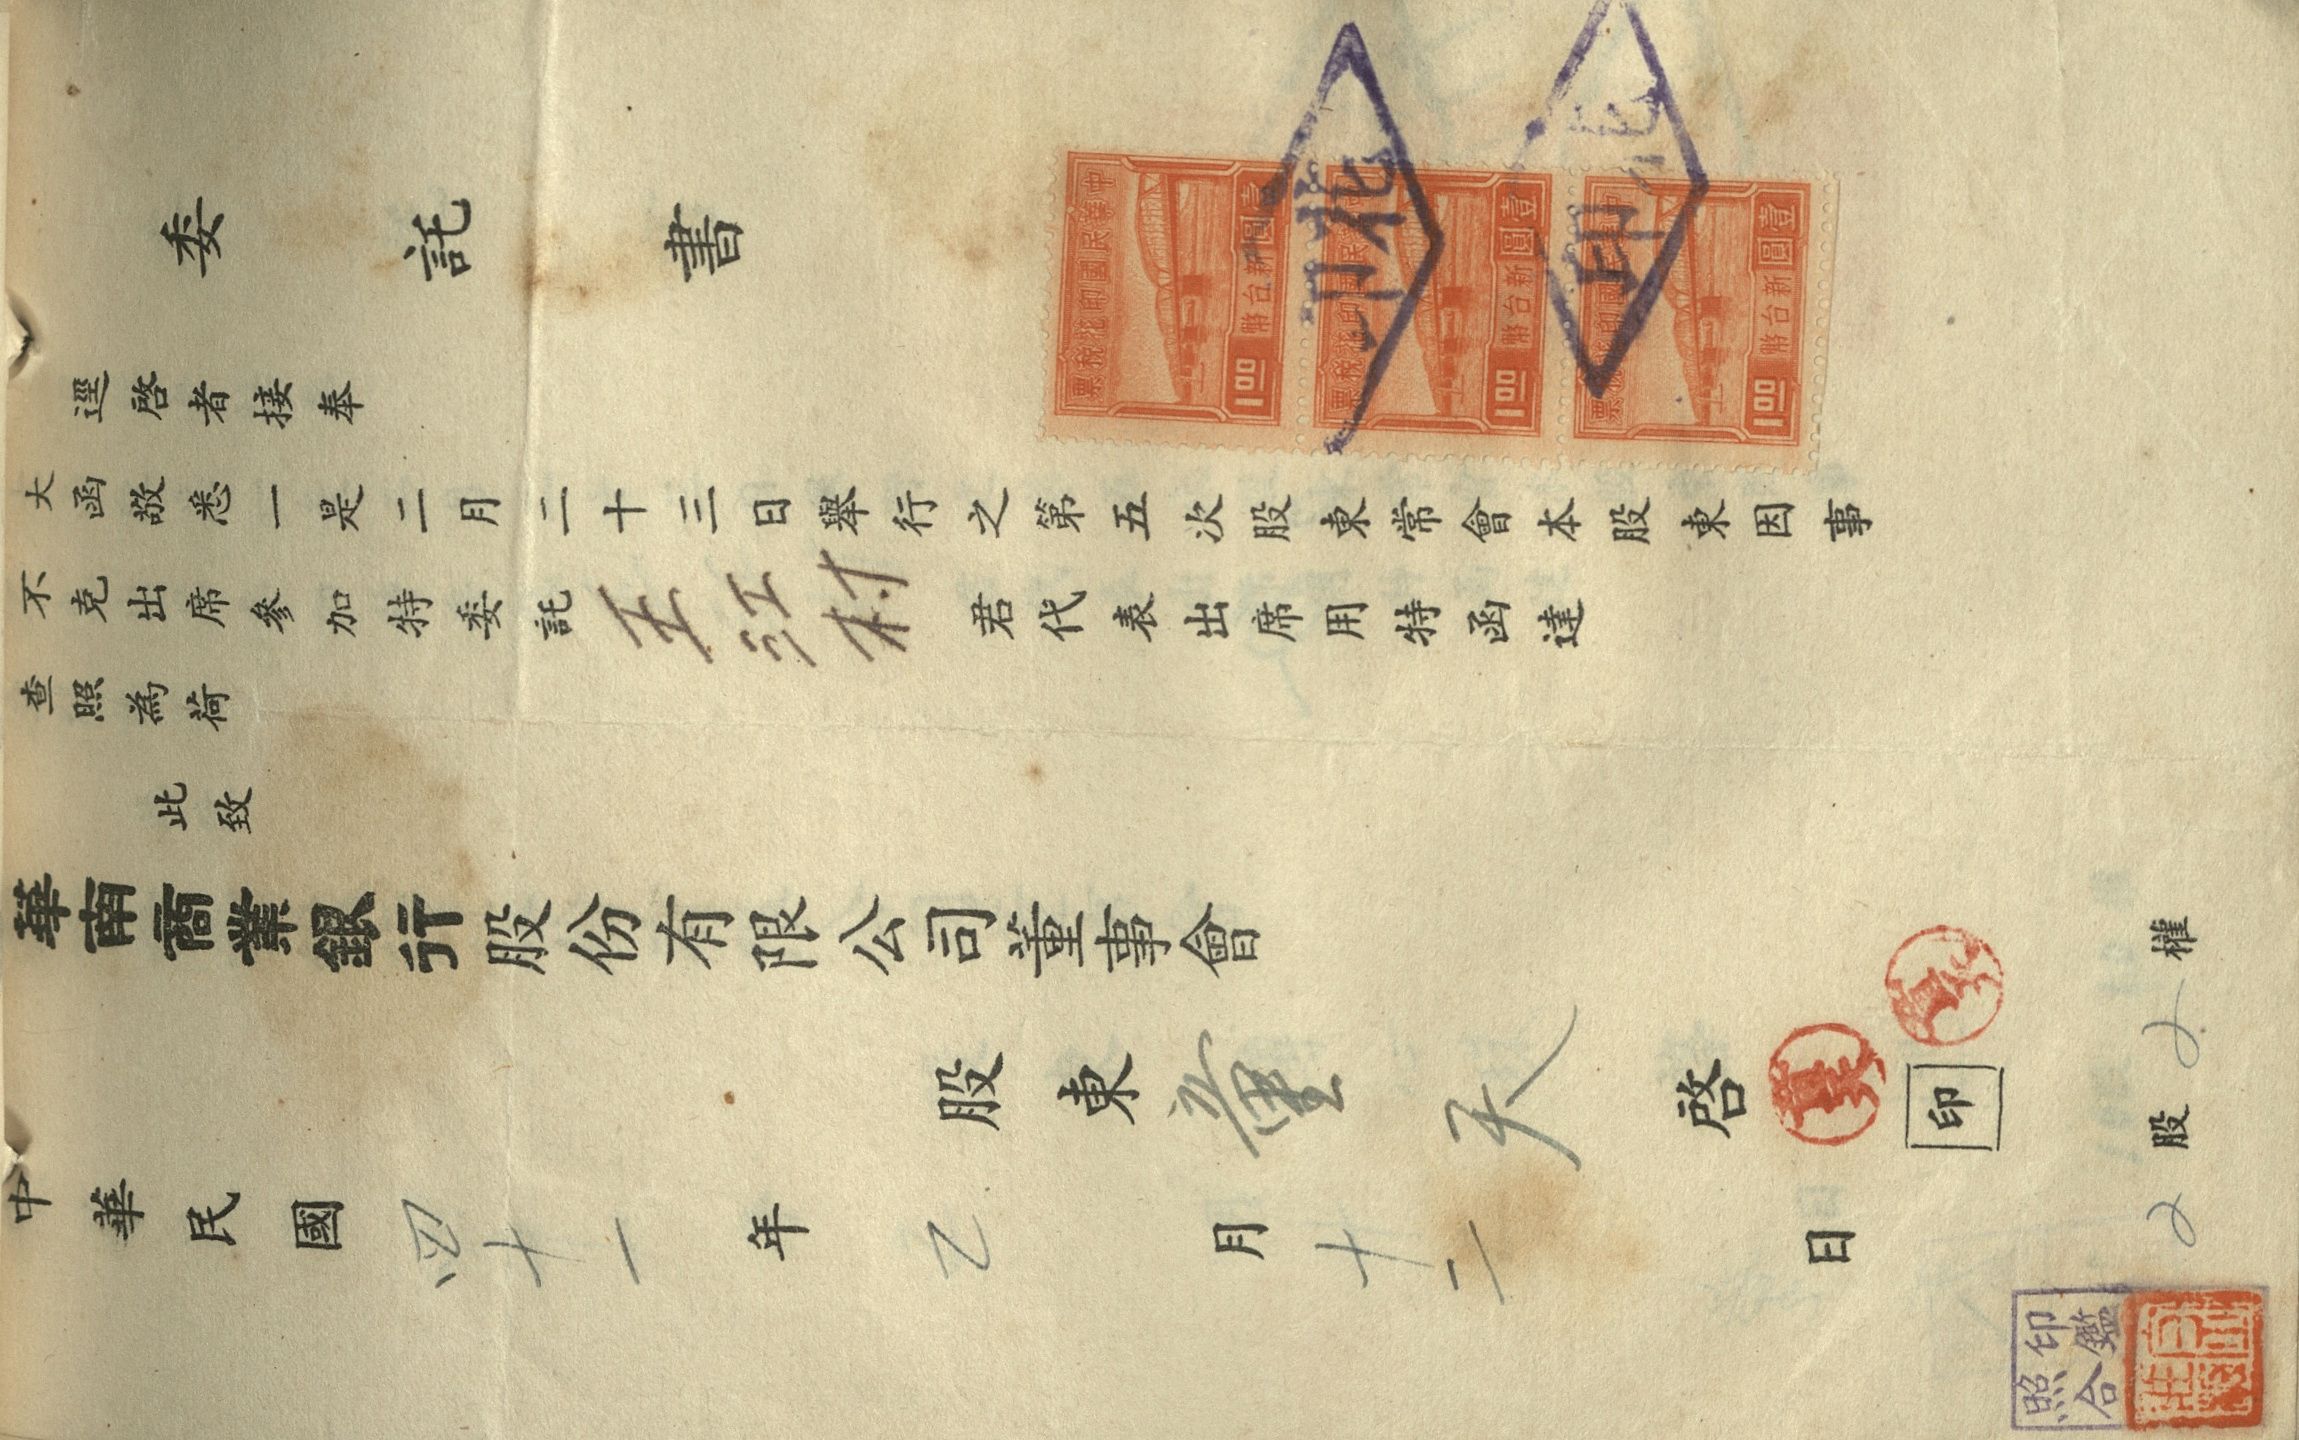 委託書
逕啓者接奉
大函敬悉一是二月二十三日舉行之第五次股東常會本股東因事
不克出席參加特委託王江村君代表出席用特函達
查照為荷
此致
華南商業銀行股份有限公司董事會
股東 童天 啓
印
中華民國四十一年乙月十二日
2股2權
中華民國印花稅票
壹圓
新台幣
1.00
中華民國印花稅票
壹圓
新台幣
1.00
中華民國印花稅票
壹圓
新台幣
1.00
印花
印花
印鑑
照合